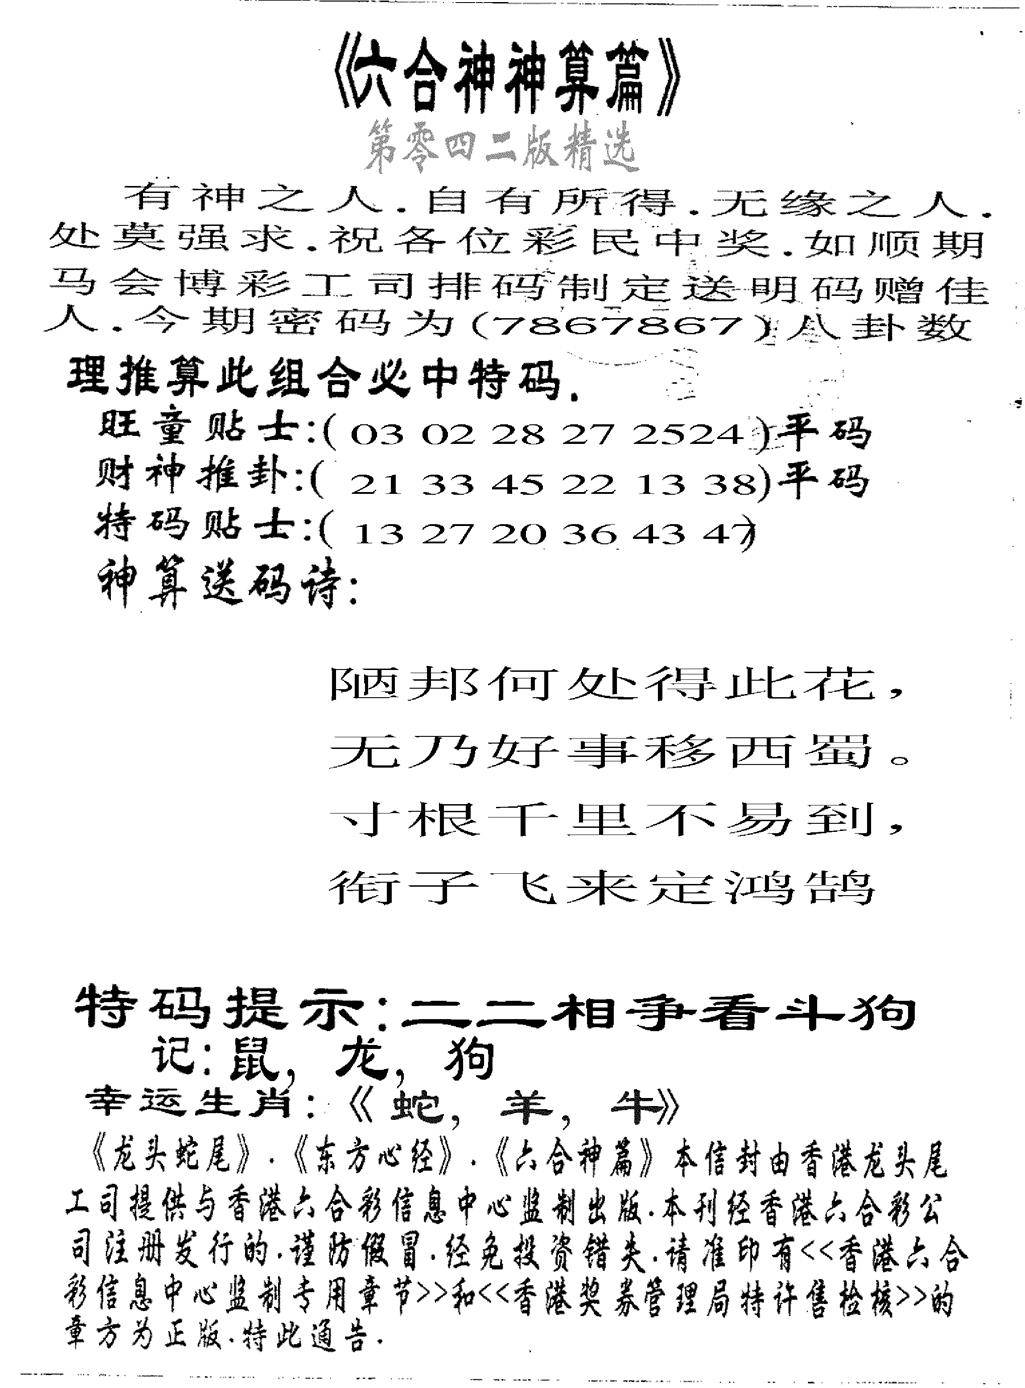 《六合神神算篇》
第零四二版精选
有神之人.自有所得.无缘之人.
处莫强求.祝各位彩民中奖.如顺期
马会博彩工司排码制定送明码赠佳
人.今期密码为(7867867)八卦数
理推算此组合必中特码.
旺童贴士:( 03 02 28 27 2524 )平码
财神推卦:( 21 33 45 22 13 38)平码
特码贴士:( 13 27 20 36 43 47)
神算送码诗:
陋邦何处得此花,
无乃好事移西蜀。
寸根千里不易到,
衔子飞来定鸿鹄
特码提示:二二相争看斗狗
记:鼠,龙,狗
幸运生肖:《蛇,羊,牛》
《龙头蛇尾》.《东方心经》.《六合神篇》本信封由香港龙头尾
工司提供与香港六合彩信息中心监制出版.本刊经香港六合彩公
司注册发行的.谨防假冒.经免投资错失.请准印有<<香港六合
彩信息中心监制专用章节>>和<<香港奖券管理局特许售检核>>的
章方为正版.特此通告.